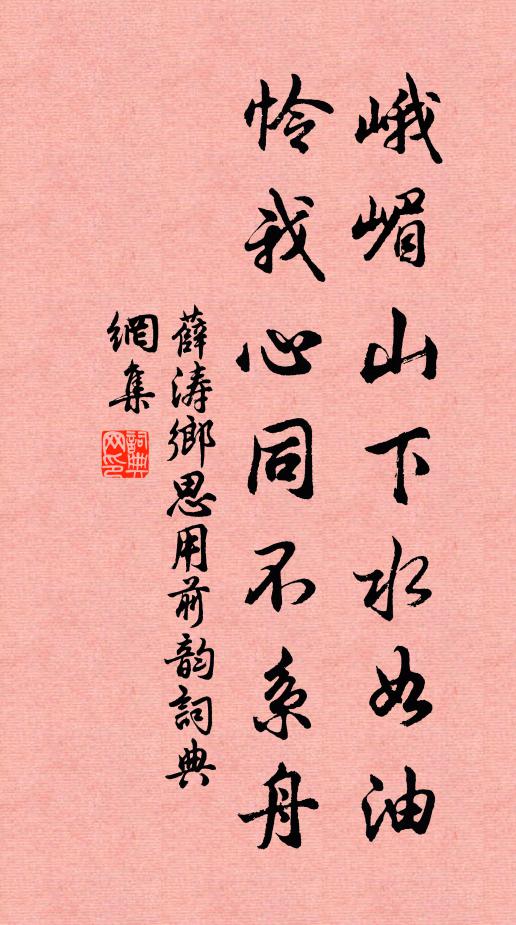 峨嵋山下水如油
怜我心同不系舟
薛涛鄉思用前韵詞典
網集
詞典网印